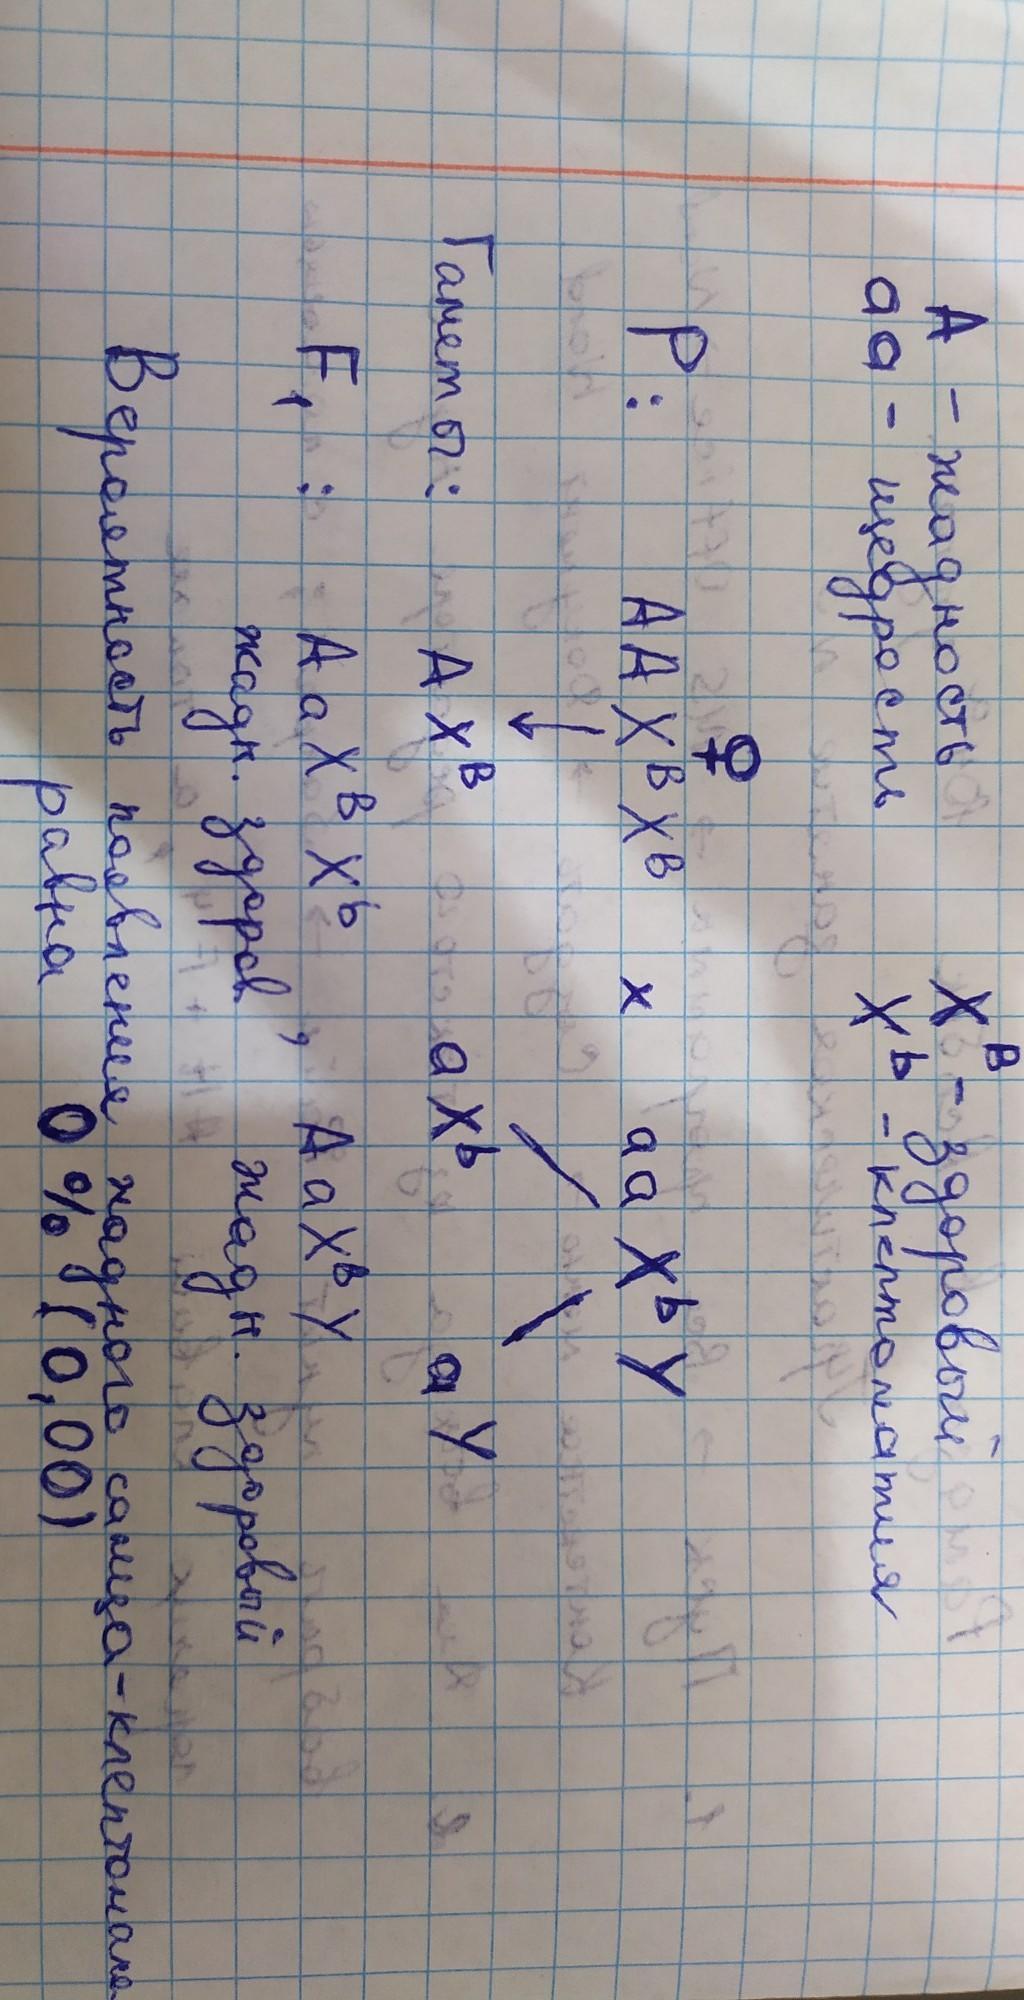 A - жадность X^B - здоровый
aa - щедрость X^b - клептомания
♀
P: AAX^BX^B x aaX^bY
Гаметы: AX^B aX^b aY
F₁: AaX^BX^b, AaX^BY
жадн. здоров жадн. здоровый
Вероятность появления жадного самца-клептомана
равна 0% (0,00)